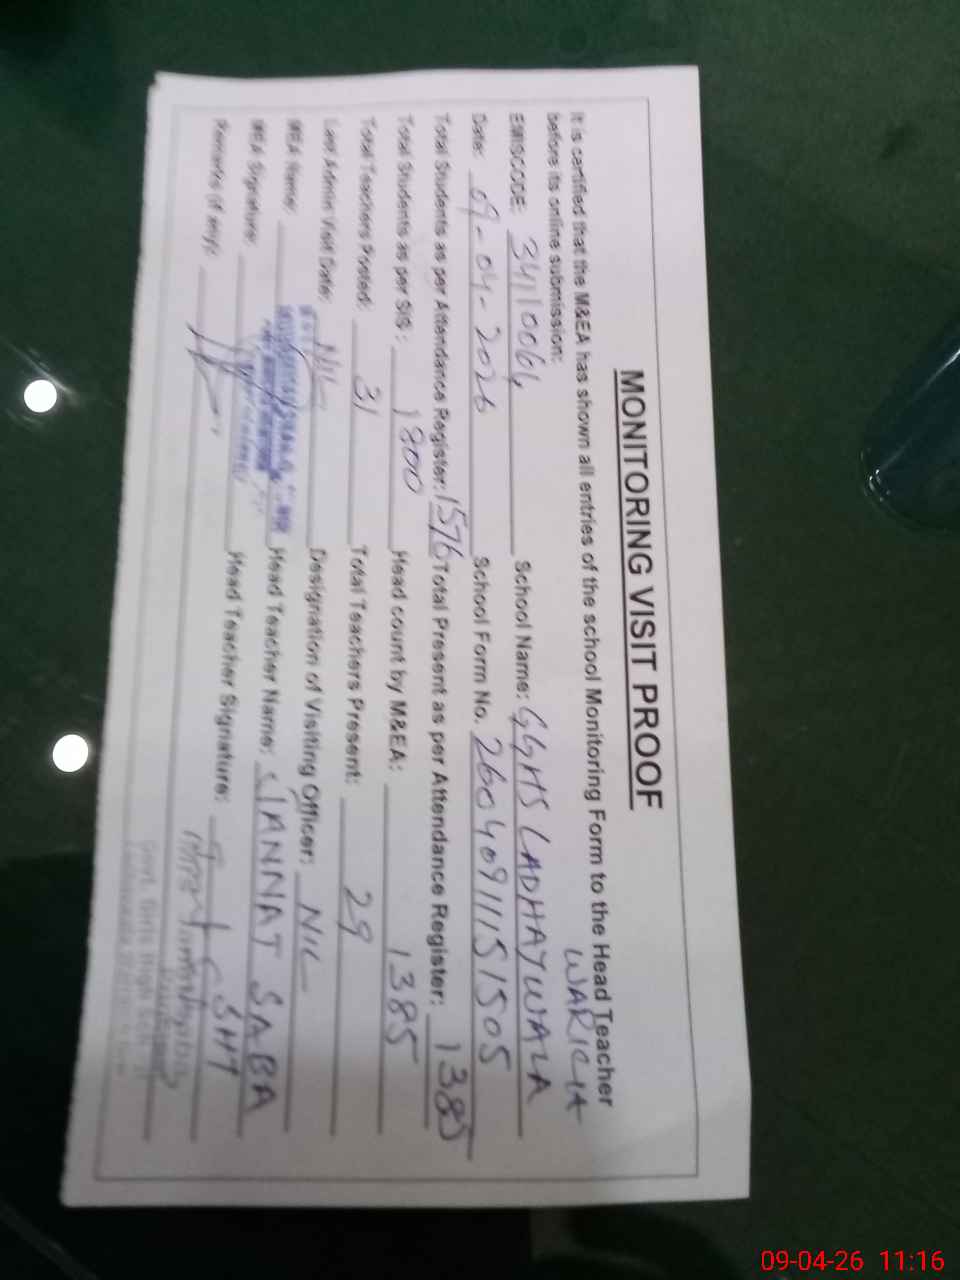 MONITORING VISIT PROOF
It is certified that the M&EA has shown all entries of the school Monitoring Form to the Head Teacher
before its online submission:
WARICHA
EMISCODE: 34110061 School Name: GGHS LADHAYWALA
Date: 09-04-2026 School Form No. 26040911151505
Total Students as per Attendance Register: 1576 Total Present as per Attendance Register: 1385
Total Students as per SIS: 1800 Head count by M&EA: 1385
Total Teachers Posted: 31 Total Teachers Present: 29
Last Admin Visit Date: NIL Designation of Visiting Officer: NIL
MEA Name: Head Teacher Name: JANNAT SABA
MEA Signature: Head Teacher Signature: SHT
Remarks (if any):
Govt. Girls High School
09-04-26 11:16